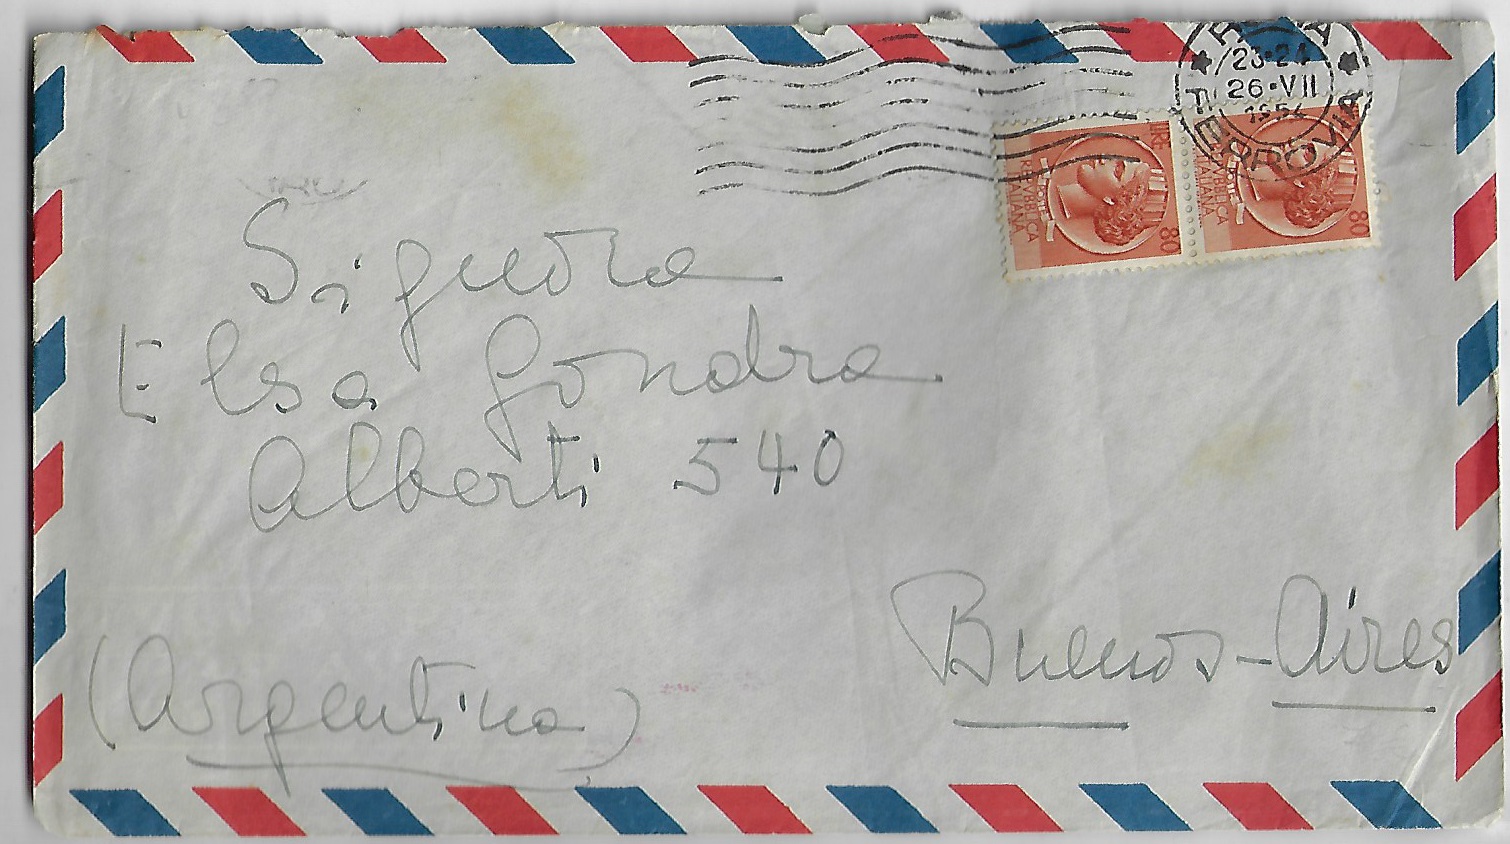 23•24
26•VII
FERROVIA
LIRE 80
REPVBBLICA
ITALIANA
80
REPVBBLICA
ITALIANA
Signora
Elsa Gondra
Alberti 540
Buenos-Aires
(Argentina)